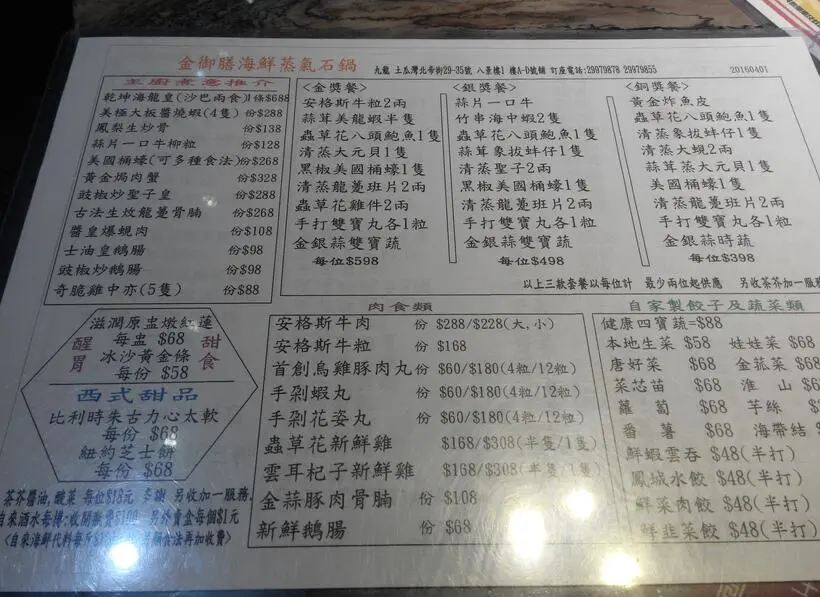 金御膳海鮮蒸氣石鍋
九龍 土瓜灣北帝街29-35號 八景樓1 樓A-D號鋪 訂座電話:29979878 29979855
20160401
主廚煮意推介
乾坤海龍皇(沙巴兩食)1條$688
美極大板醬燒蝦(4隻) 份$288
鳳梨生炒骨 份$138
蒜片一口牛柳粒 份$128
美國桶蠔(可多種食法)份$268
黃金焗肉蟹 份$328
豉椒炒聖子皇 份$288
古法生炆龍躉骨腩 份$268
醬皇爆蜆肉 份$108
士油皇鵝腸 份$98
豉椒炒鵝腸 份$98
奇脆雞中亦(5隻) 份$88
<金獎餐>
安格斯牛粒2兩
蒜茸美龍蝦半隻
蟲草花八頭鮑魚1隻
清蒸大元貝1隻
黑椒美國桶蠔1隻
清蒸龍躉班片2兩
蟲草花雞件2兩
手打雙寶丸各1粒
金銀蒜雙寶蔬
每位$598
<銀獎餐>
蒜片一口牛
竹串海中蝦2隻
蟲草花八頭鮑魚1隻
蒜茸象拔蚌仔1隻
清蒸聖子2兩
黑椒美國桶蠔1隻
清蒸龍躉班片2兩
手打雙寶丸各1粒
金銀蒜雙寶蔬
每位$498
<銅獎餐>
黃金炸魚皮
蟲草花八頭鮑魚1隻
清蒸象拔蚌仔1隻
清蒸大蜆2兩
蒜茸蒸大元貝1隻
美國桶蠔1隻
清蒸龍躉班片2兩
手打雙寶丸各1粒
金銀蒜時蔬
每位$398
以上三款套餐以每位計 最少兩位起供應 另收茶芥加一服務
滋潤原盅燉紅蓮
每盅 $68
冰沙黃金條
每份 $58
醒胃
甜食
西式甜品
比利時朱古力心太軟
每份 $68
紐約芝士餅
每份 $68
茶芥醬油,酸菜 每位$18元 多謝 另收加一服務.
自來酒水每樽:收開瓶費$100 另外賣盒每個$1元
肉食類
安格斯牛肉 份 $288/$228(大,小)
安格斯牛粒 份 $168
首創烏雞豚肉丸 份 $60/$180(4粒/12粒)
手剁蝦丸 份 $60/$180(4粒/12粒)
手剁花姿丸 份 $60/$180(4粒/12粒)
蟲草花新鮮雞 $168/$308(半隻/1隻)
雲耳杞子新鮮雞 $168/$308(半隻/1隻)
金蒜豚肉骨腩 份 $108
新鮮鵝腸 份 $68
自家製餃子及蔬菜類
健康四寶蔬=$88
本地生菜 $58 娃娃菜 $68
唐好菜 $68 金菰菜 $68
菜芯苗 $68 淮 山 $6
蘿 蔔 $68 芋絲 $
番 薯 $68 海帶結 $
鮮蝦雲吞 $48(半打)
鳳城水餃 $48(半打)
鮮菜肉餃 $48(半打)
鮮韭菜餃 $48(半打)